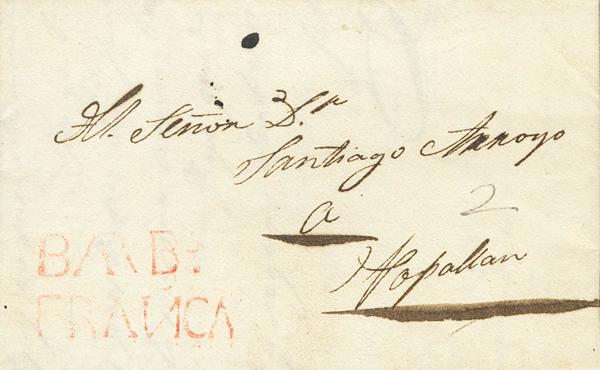 Al. Señor D.r
Santiago Arroyo
a
Popallan
2
BARB.s
FRANCA